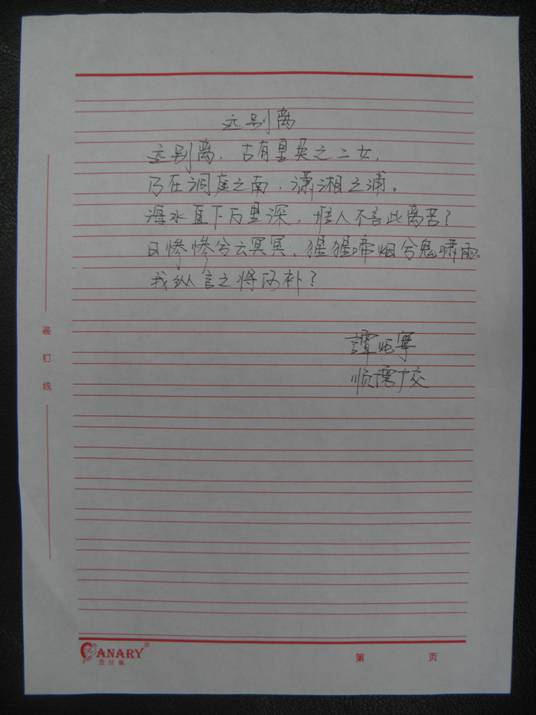 远别离
远别离,古有皇英之二女,
乃在洞庭之南,潇湘之浦。
海水直下万里深,谁人不言此离苦?
日惨惨兮云冥冥,猩猩啼烟兮鬼啸雨
我纵言之将何补?
譚
装订线
ANARY®
第 页